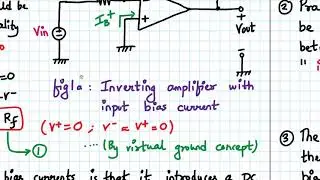 d be
ality
Vin
IB+
+
Vout
fig1a : Inverting amplifier with
input bias current
(V+=0 ; V- = V+=0)
=0
V-
Rf
①
.... (By virtual ground concept)
bias currents is that it introduces a DC
② Pra
be
bet
" is
③ The
th